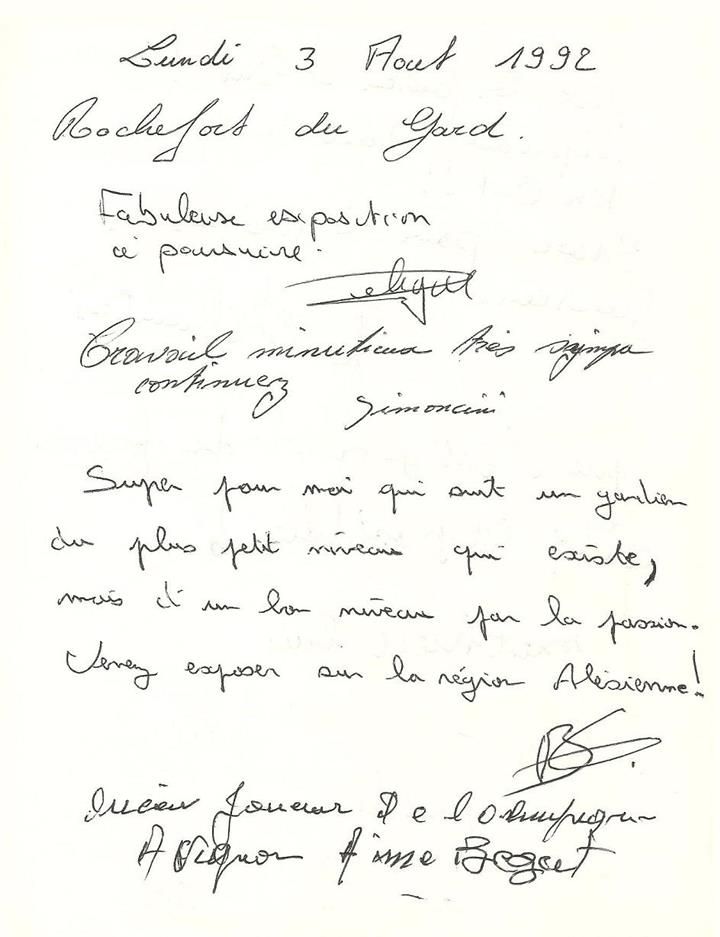 Lundi 3 Aout 1992
Rochefort du Gard.
Fabuleuse exposition
à poursuivre.
Travail minutieux très sympa
continuez
Simoncini
Super pour moi qui suit un gardien
du plus petit niveau qui existe,
mais d'un bon niveau par la passion.
Venez exposer sur la région Alésienne!
Joueur De l
Avignon Aime